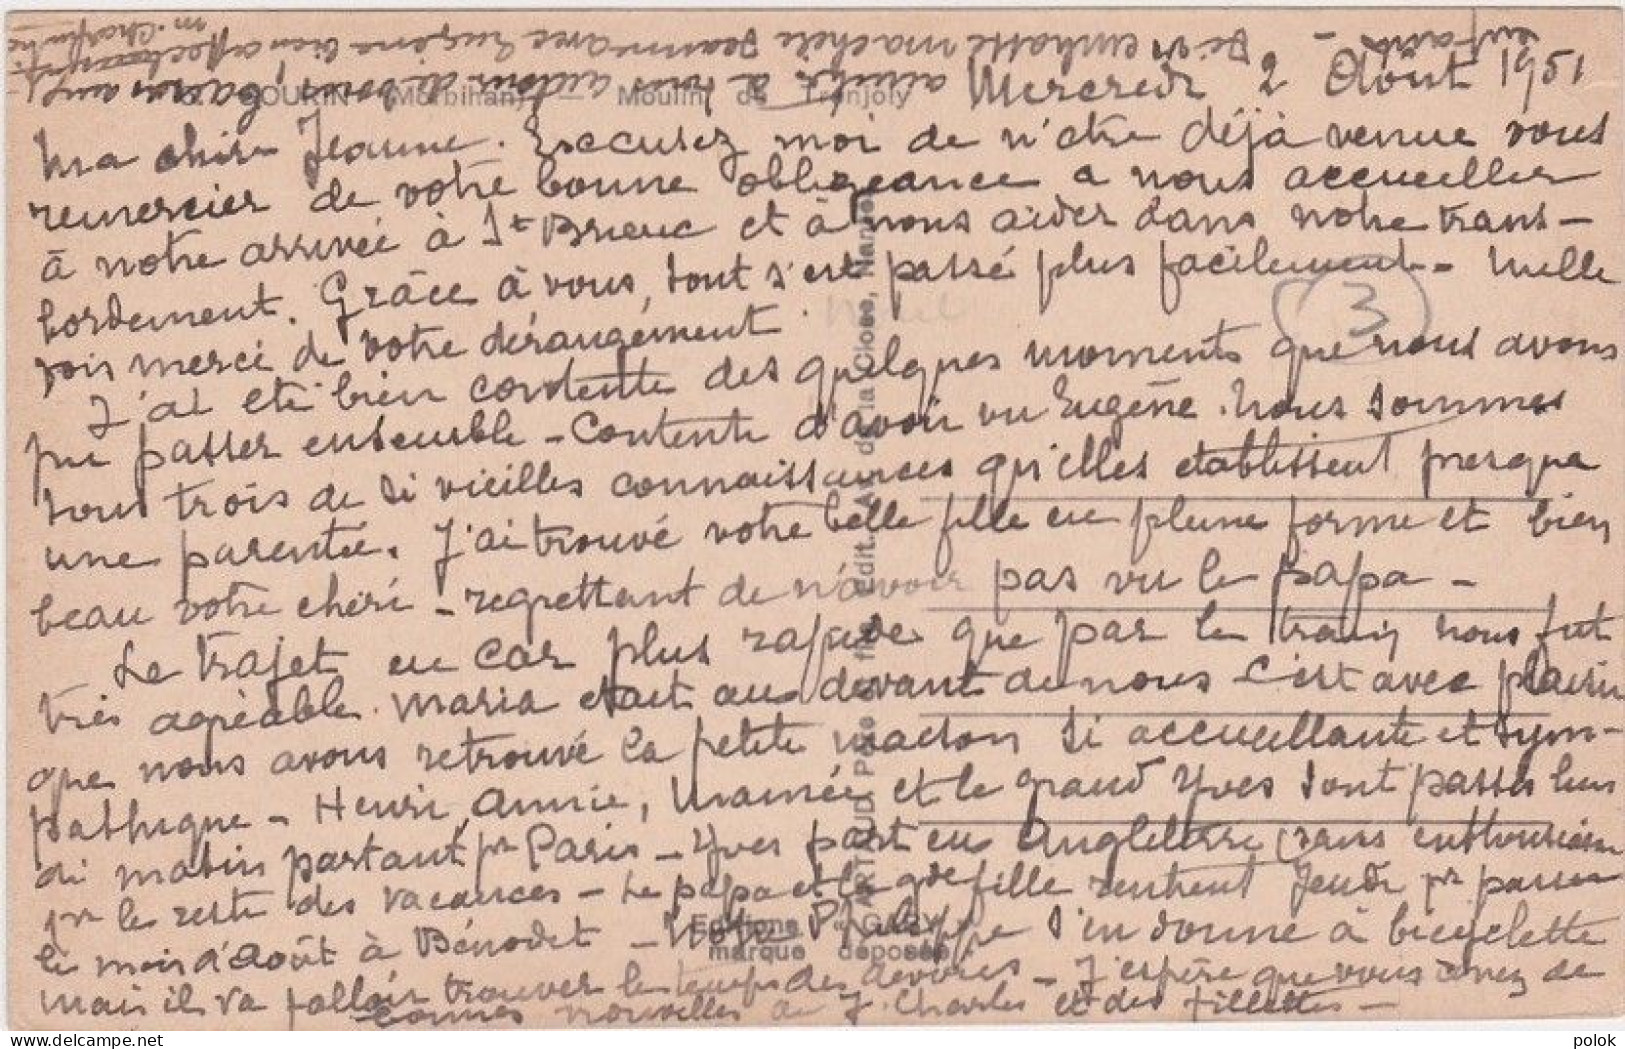 Mercredi 2 Août 1951
GOURIN (Morbihan) — Moulin de Tronjoly
Ma chère Jeanne. Excusez moi de n'être déjà venue vous
remercier de votre bonne obligeance à nous accueillir
à notre arrivée à St Brieuc et à nous aider dans notre trans-
bordement. Grâce à vous, tout s'est passé plus facilement - Mille
fois merci de votre dérangement.
3
J'ai été bien contente des quelques moments que nous avons
pu passer ensemble - Contente d'avoir vu Eugène. Nous sommes
tous trois de si vieilles connaissances qu'elles établissent presque
une parenté. J'ai trouvé votre belle fille en pleine forme et bien
beau votre chéri - regrettant de n'avoir pas vu le papa -
Le trajet en car plus rapide que par le train nous fut
très agréable. Maria était au devant de nous C'est avec plaisir
que nous avons retrouvé la petite maison si accueillante et sym-
pathique - Henri, Annie, et le grand Yves sont passés
di matin partant pr Paris - Yves part en Angleterre (sans enthousiasme
pr le reste des vacances - Le papa et la gde fille rentrent Jeudi pr passer
le mois d'août à Bénodet - Notre Philippe s'en donne à bicyclette
mais il va falloir trouver le temps des devoirs - J'espère que vous avez de
bonnes nouvelles de J. Charles et des fillettes -
amitiés à tous autour de vous,
enfants - Je vs embrasse ma chère Jeanne avec Eugène bien affectueusement.
M.
ARTAUD Père et fils, édit., Av. de la Close, Nantes
Editions "GABY"
marque déposée
polok